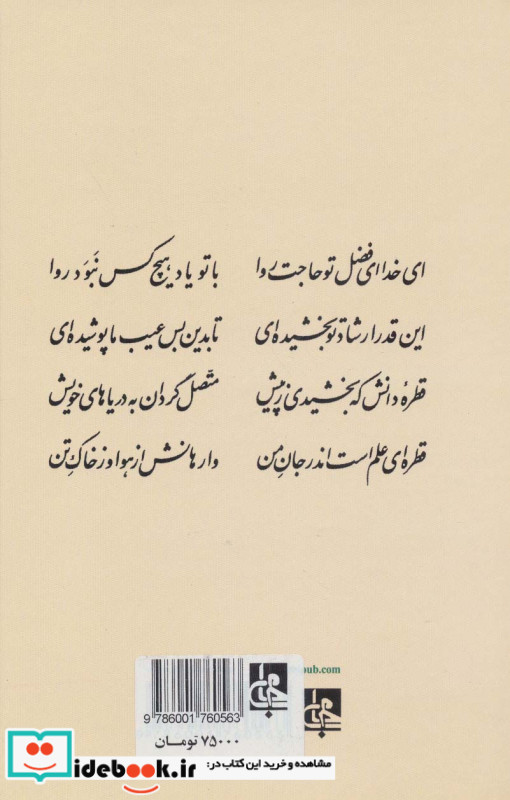 ای خدا ای فضل تو حاجت روا با تو یاد هیچ کس نبَوَد روا
این قدر ارشاد تو بخشیده‌ای تا بدین بس عیب ما پوشیده‌ای
قطرهٔ دانش که بخشیدی ز پیش متّصل گردان به دریاهای خویش
قطره‌ای علم است اندر جانِ من وارهانش از هوا وز خاکِ تن
oub.com
9 786001 760563
۷۵۰۰۰ تومـان
idebook.ir
مشاهده و خرید این کتاب در: